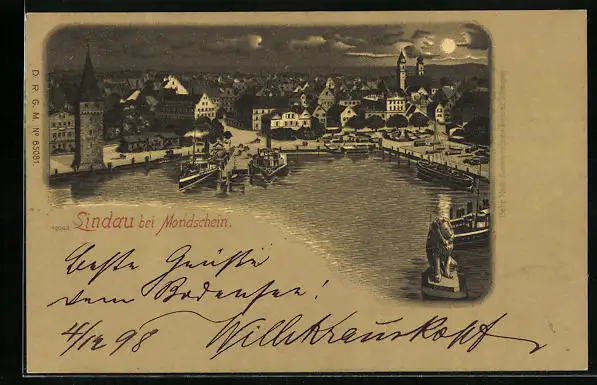 D. R. G. M. Nº 65081.
Lindau bei Mondschein.
beste Grüße
vom Bodensee!
4/12 98 Willi Krauskopf